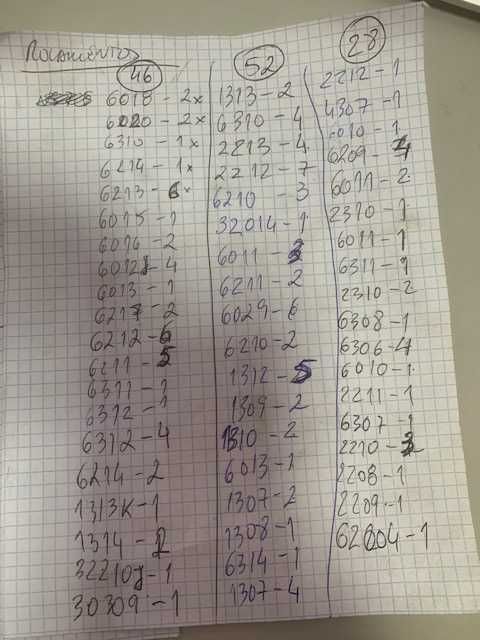 ROLAMENTOS
46
6018 - 2x
6020 - 2x
6310 - 1x
6214 - 1x
6213 - 6x
6015 - 1
6016 - 2
6012 - 4
6013 - 1
6217 - 2
6212 - 6
6211 - 5
6311 - 1
6312 - 1
6312 - 4
6214 - 2
1313K - 1
1314 - 2
32210J - 1
30309 - 1
52
1313 - 2
6310 - 4
2213 - 4
2212 - 7
6210 - 3
32014 - 1
6011 - 3
6211 - 2
6029 - 6
6210 - 2
1312 - 5
1309 - 2
1310 - 2
6013 - 1
1307 - 2
1308 - 1
6314 - 1
1307 - 4
28
2212 - 1
4307 - 1
6010 - 1
6209 - 4
6011 - 2
2310 - 1
6011 - 1
6311 - 1
2310 - 2
6308 - 1
6306 - 4
6010 - 1
2211 - 1
6307 - 1
2210 - 3
2208 - 1
2209 - 1
62804 - 1